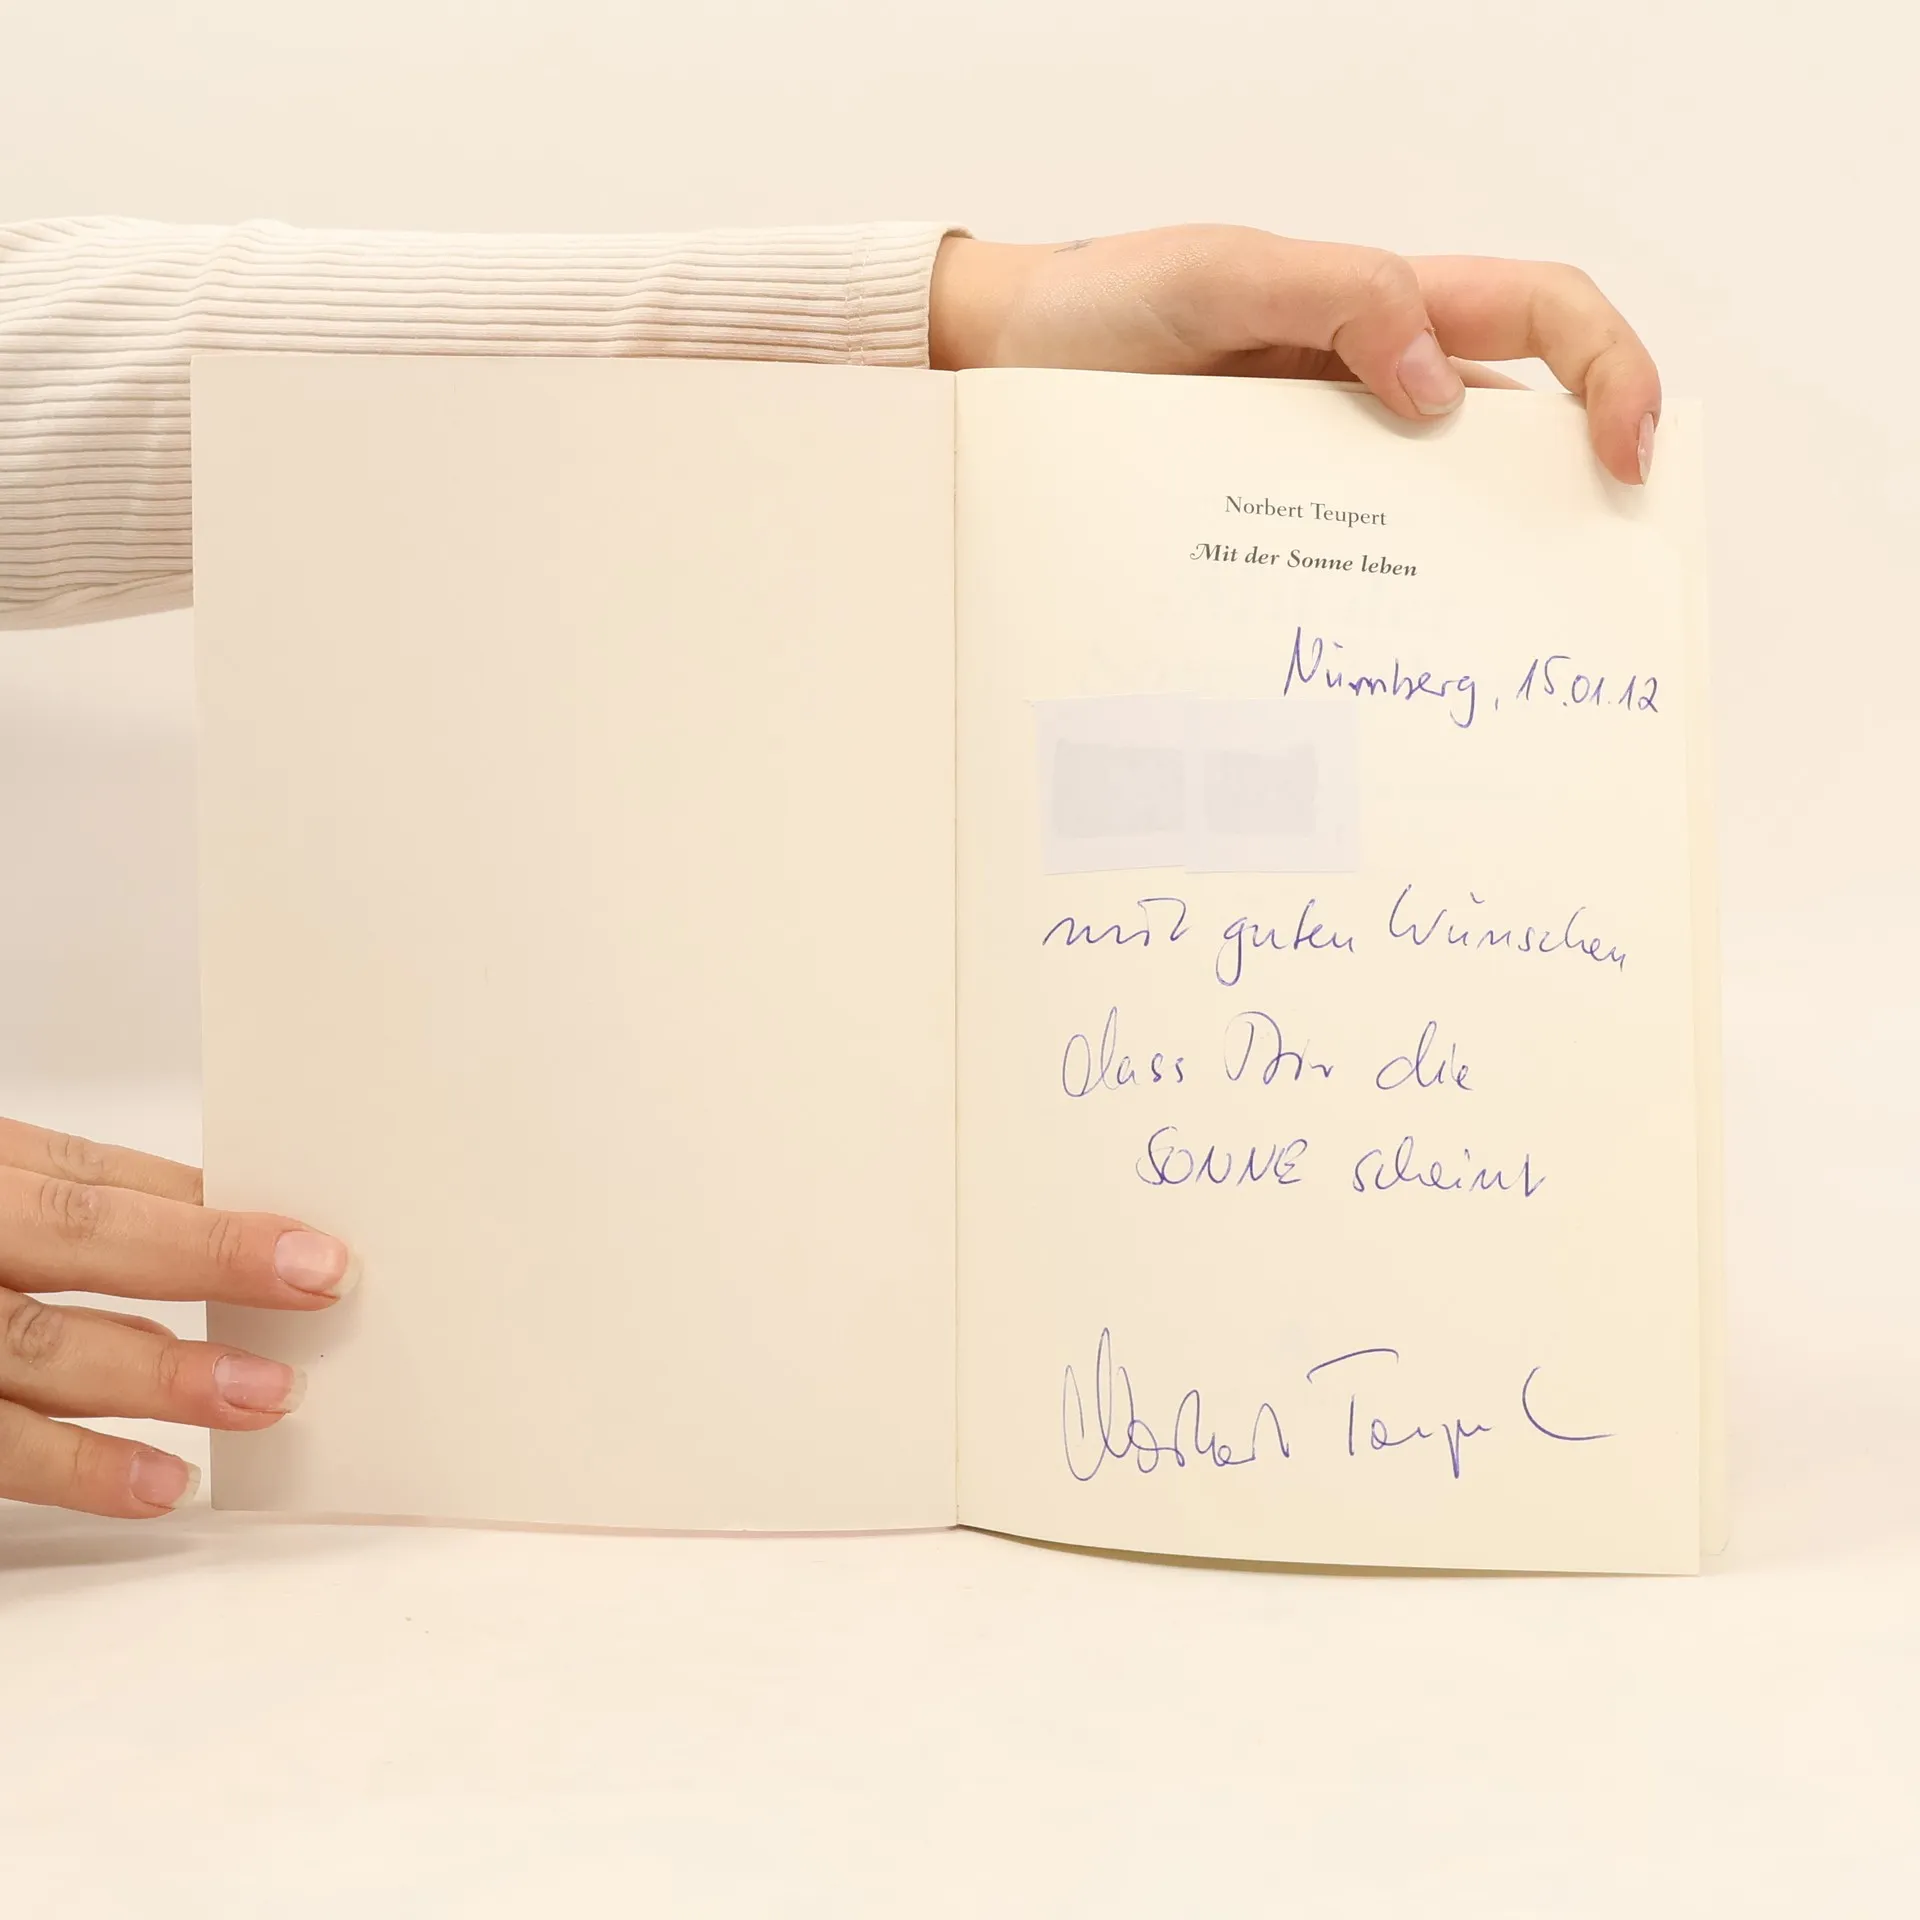 Norbert Teupert
Mit der Sonne leben
Nürnberg, 15.01.12
mit guten Wünschen
dass Dir die
SONNE scheint
Norbert Teupert